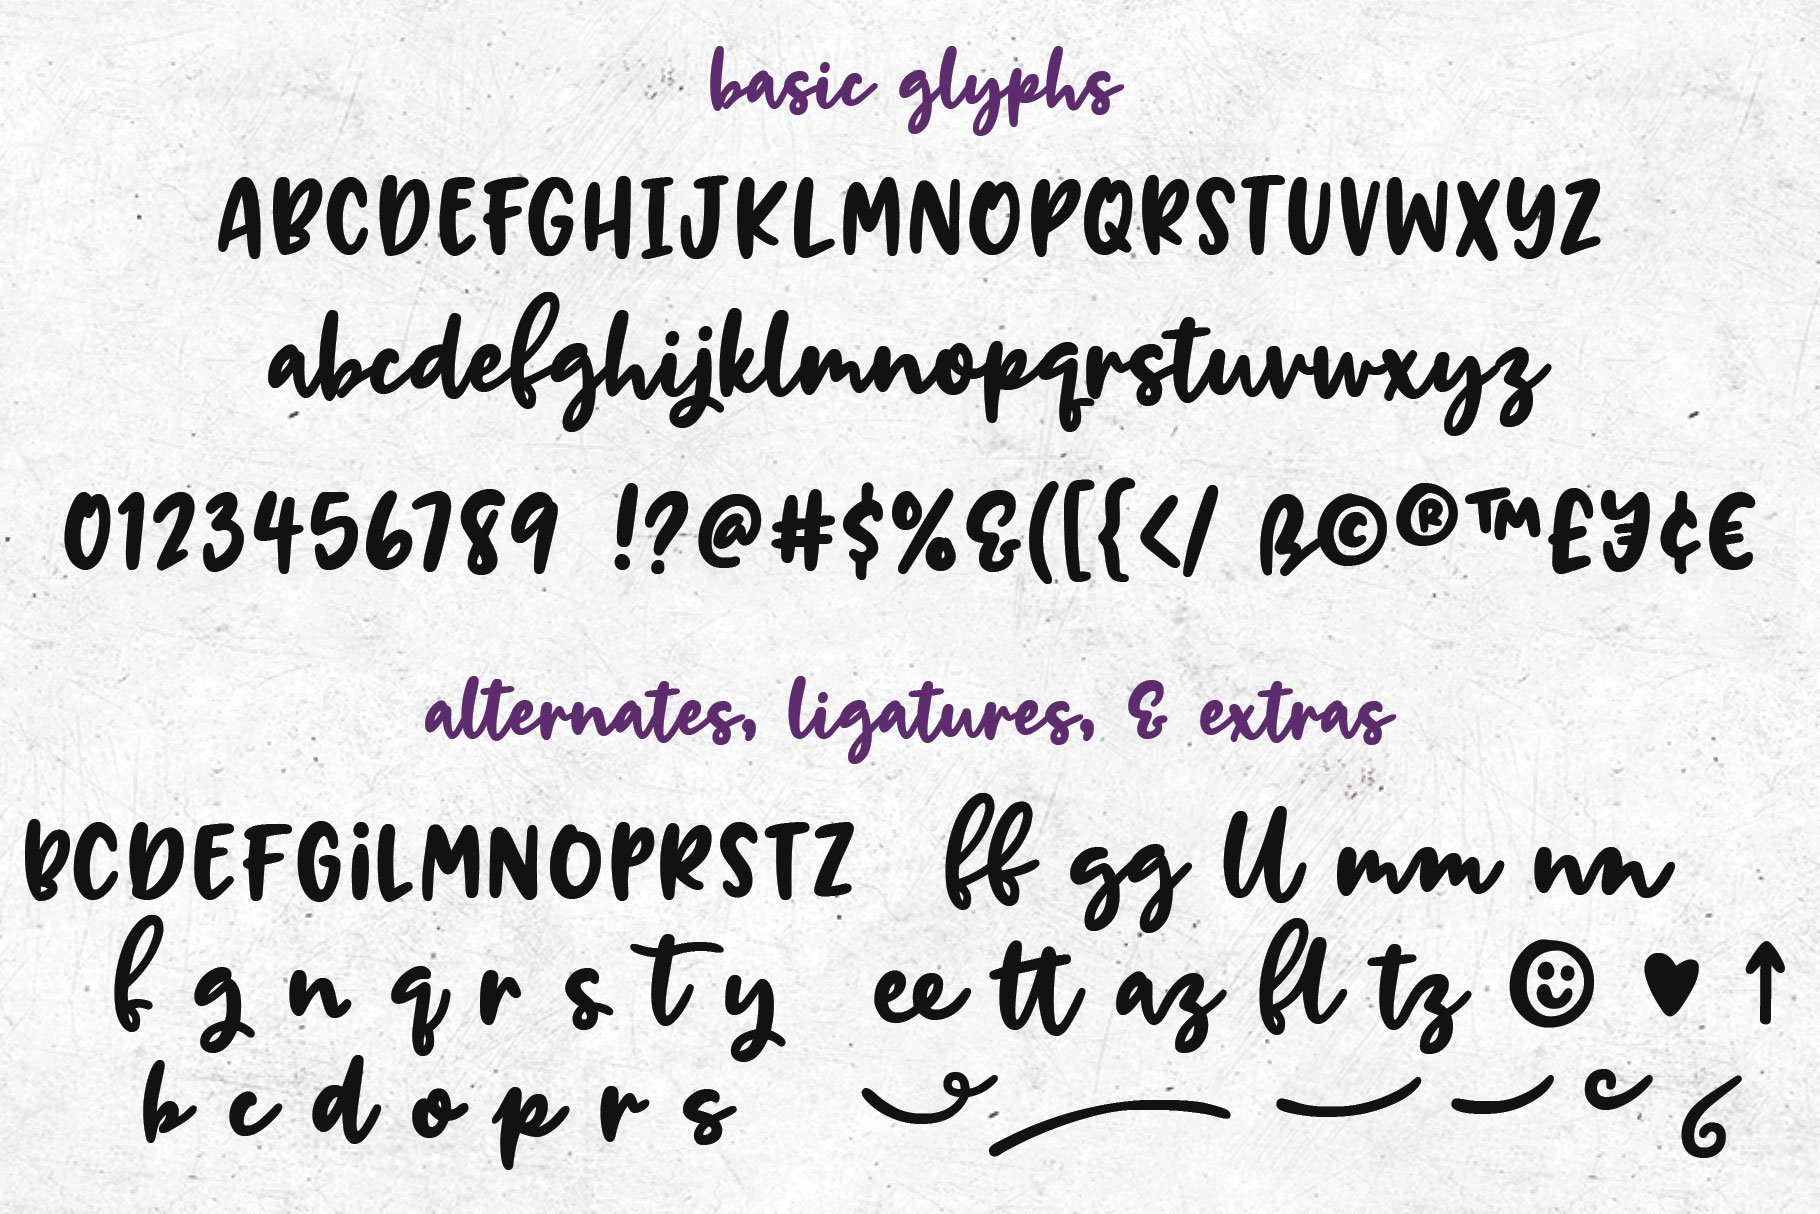 basic glyphs
ABCDEFGHIJKLMNOPQRSTUVWXYZ
abcdefghijklmnopqrstuvwxyz
0123456789 !?@#$%&([{</ ß©®™£¥¢€
alternates, ligatures, & extras
BCDEFGiLMNOPRSTZ ff gg ll mm nn
f g n q r s t y ee tt az fl tz ☺ ♥ ↑
b c d o p r s